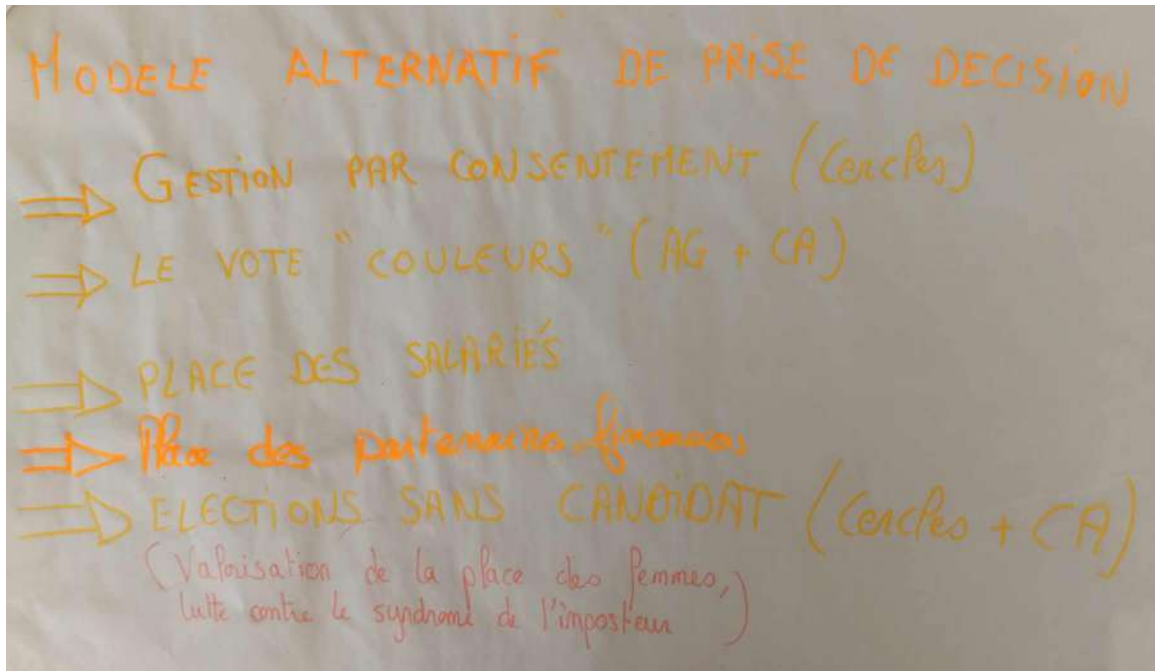 MODELE ALTERNATIF DE PRISE DE DECISION
GESTION PAR CONSENTEMENT (Cercles)
LE VOTE "COULEURS" (AG + CA)
PLACE DES SALARIÉS
Place des partenaires financiers
ELECTIONS SANS CANDIDAT (Cercles + CA)
(Valorisation de la place des femmes,
lutte contre le syndrome de l'imposteur)